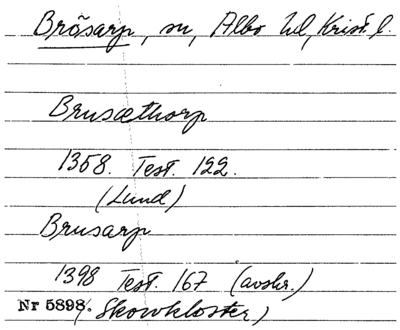 Brösarp, sn, Albo hd, Krist. l.
Brusæthorp
1358. Test. 122.
(Lund)
Brusarp
1398 Test. 167 (avskr.)
Nr 5898. (Skowkloster)